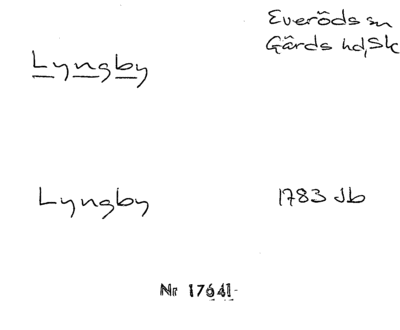 Everöds sn
Gärds hd, Sk
Lyngby
Lyngby 1783 Jb
Nr 17641